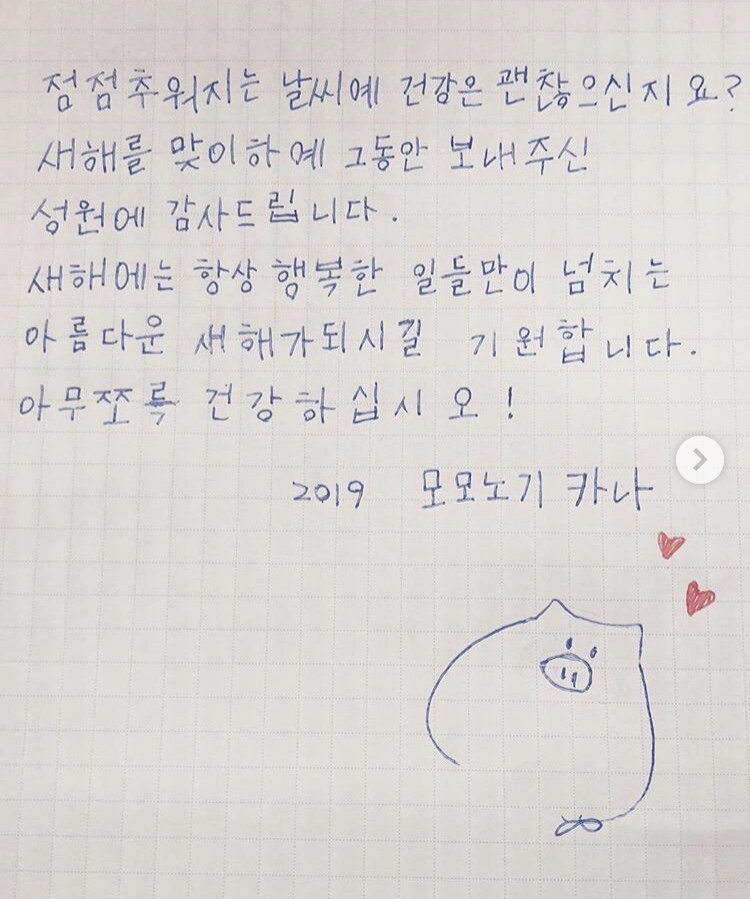 점점추워지는 날씨예 건강은 괜찮으신지요?
새해를 맞이하예 그동안 보내주신
성원에 감사드립니다.
새해에는 항상 행복한 일들만이 넘치는
아름다운 새해가되시길 기원합니다.
아무쪼록 건강하십시오!
2019 모모노기 카나